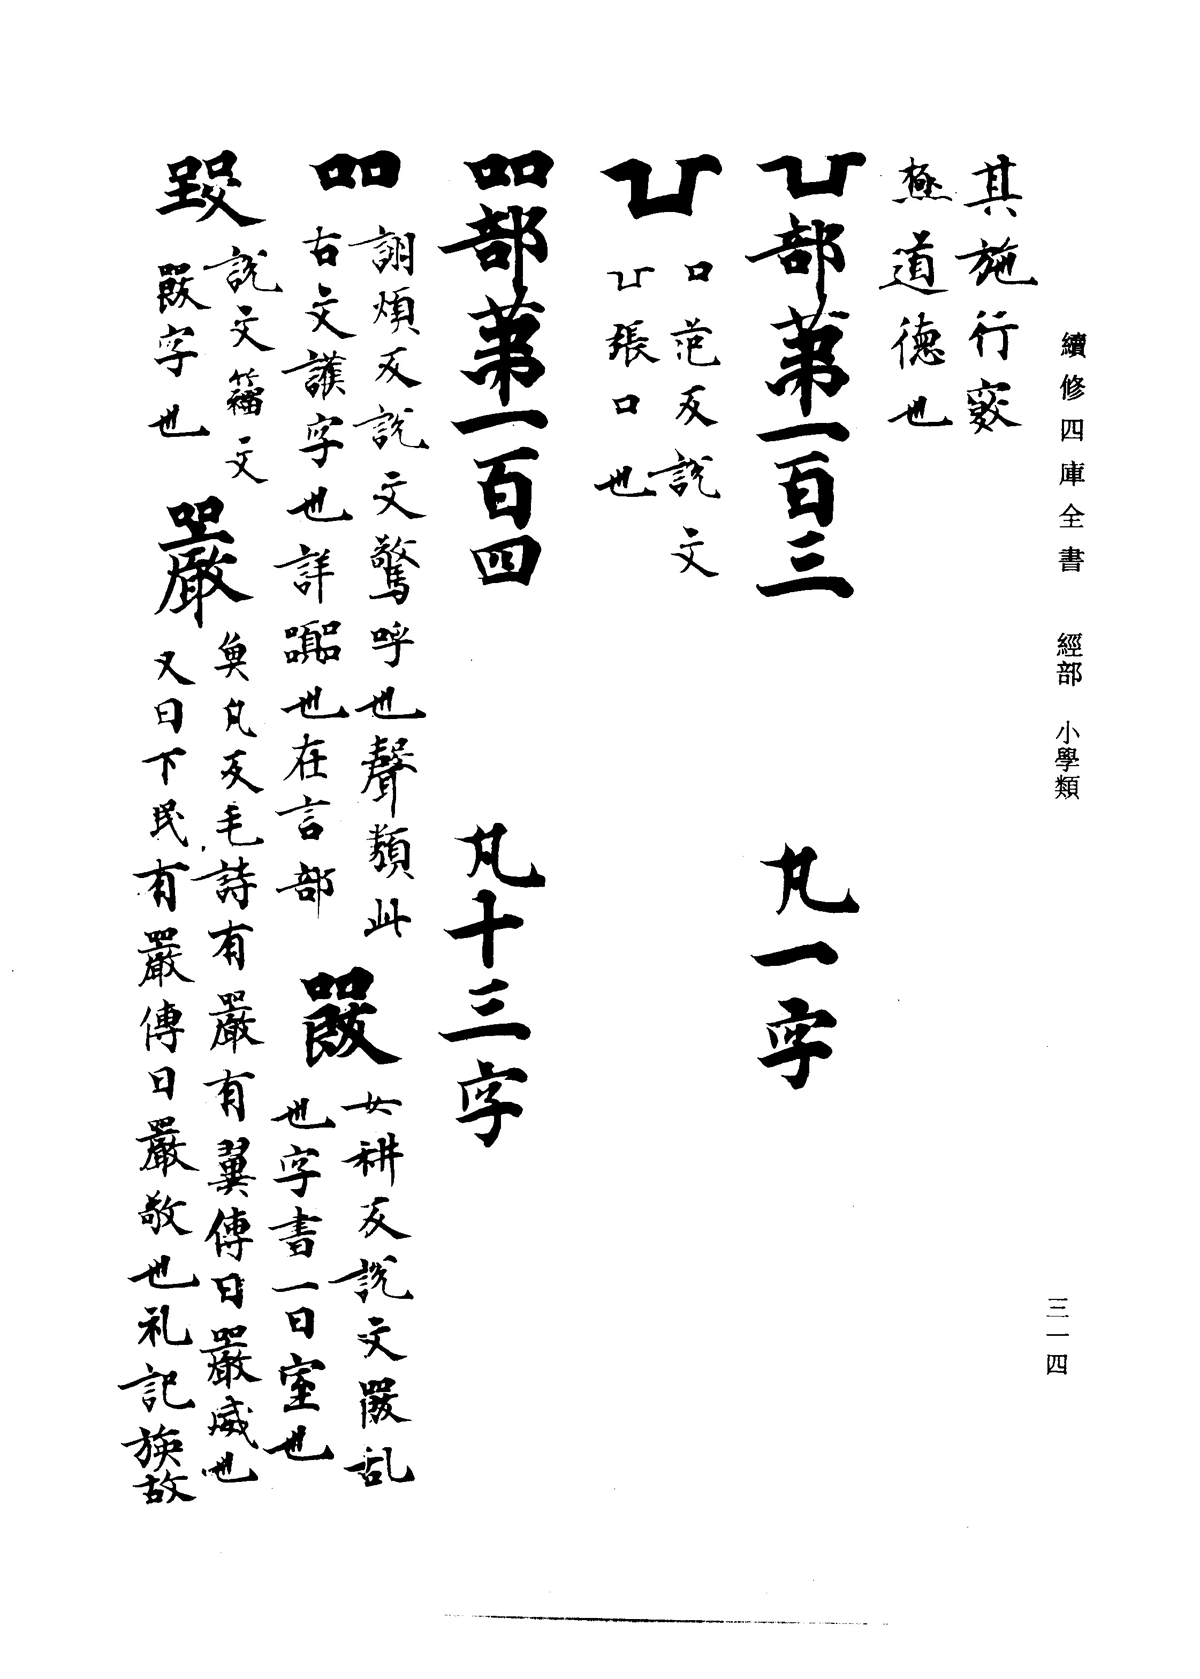 續修四庫全書 經部 小學類
三一四
其施行竅
極道德也
凵部第一百三 凡一字
凵
口范反說文
凵張口也
吅部第一百四 凡十三字
吅
詡煩反說文驚呼也聲類此
古文讙字也讙嚻也在言部
㗊
女耕反說文㗊乱
也字書一曰窒也
𣪠
說文籀文
㗊字也
嚴
魚凡反毛詩有嚴有翼傳曰嚴威也
又曰下民有嚴傳曰嚴敬也礼記族故